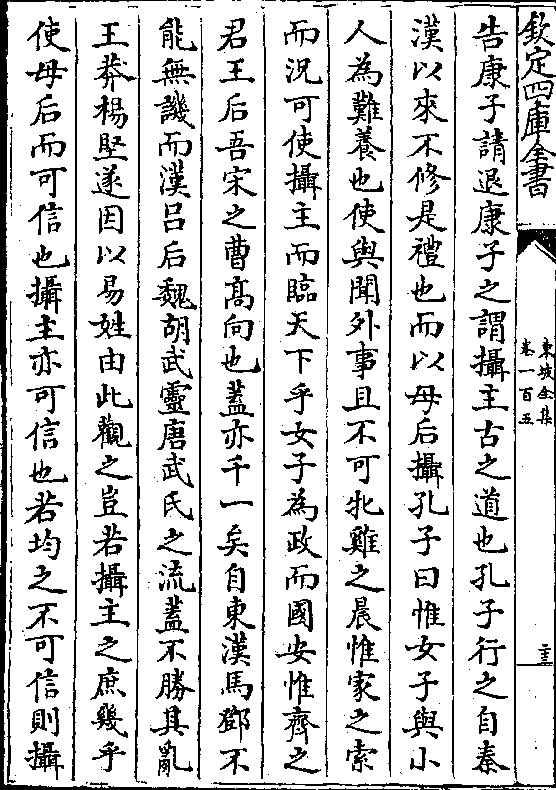 欽定四庫全書
東坡全集
卷一百五
主
告康子請退康子之謂攝主古之道也孔子行之自秦
漢以來不修是禮也而以母后攝孔子曰惟女子與小
人為難養也使與聞外事且不可牝雞之晨惟家之索
而況可使攝主而臨天下乎女子為政而國安惟齊之
君王后吾宋之曹髙向也蓋亦千一矣自東漢馬鄧不
能無譏而漢吕后魏胡武靈唐武氏之流蓋不勝其亂
王莽楊堅遂因以易姓由此觀之豈若攝主之庶幾乎
使母后而可信也攝主亦可信也若均之不可信則攝